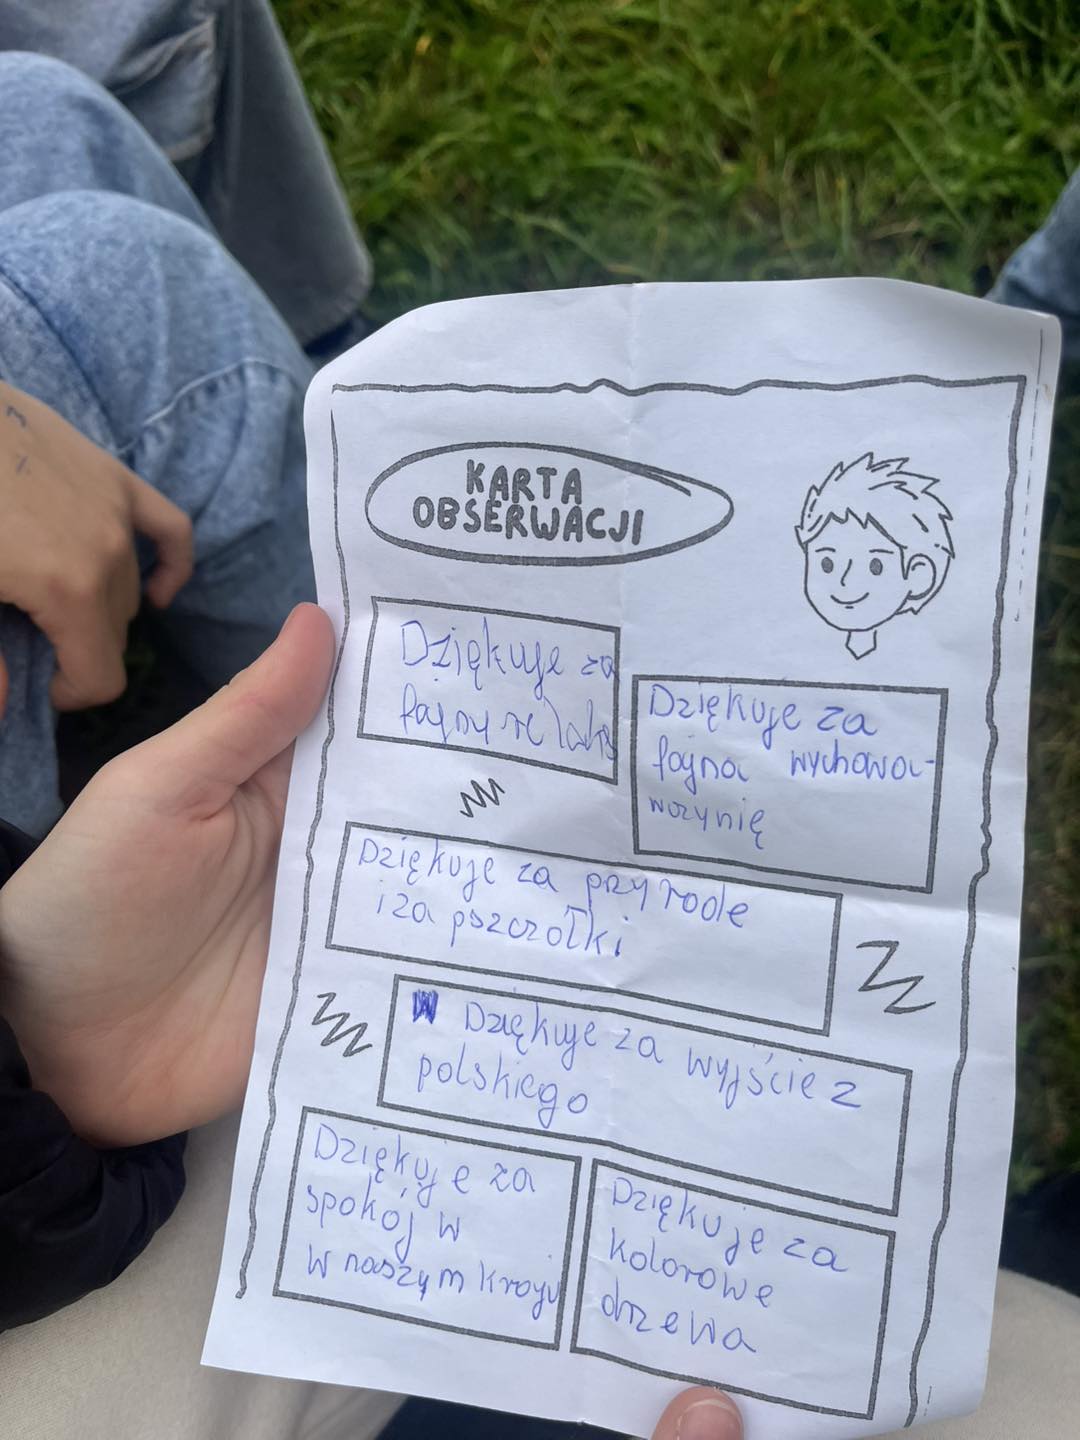 KARTA
OBSERWACJI
Dziękuje za
fajny relaks
Dziękuje za
fajna wychowa-
wczynię
Dziękuje za przyrode
i za pszczółki
Dziękuje za wyjście z
polskiego
Dziękuje za
spokój w
w naszym kraju
Dziękuje za
kolorowe
drzewa